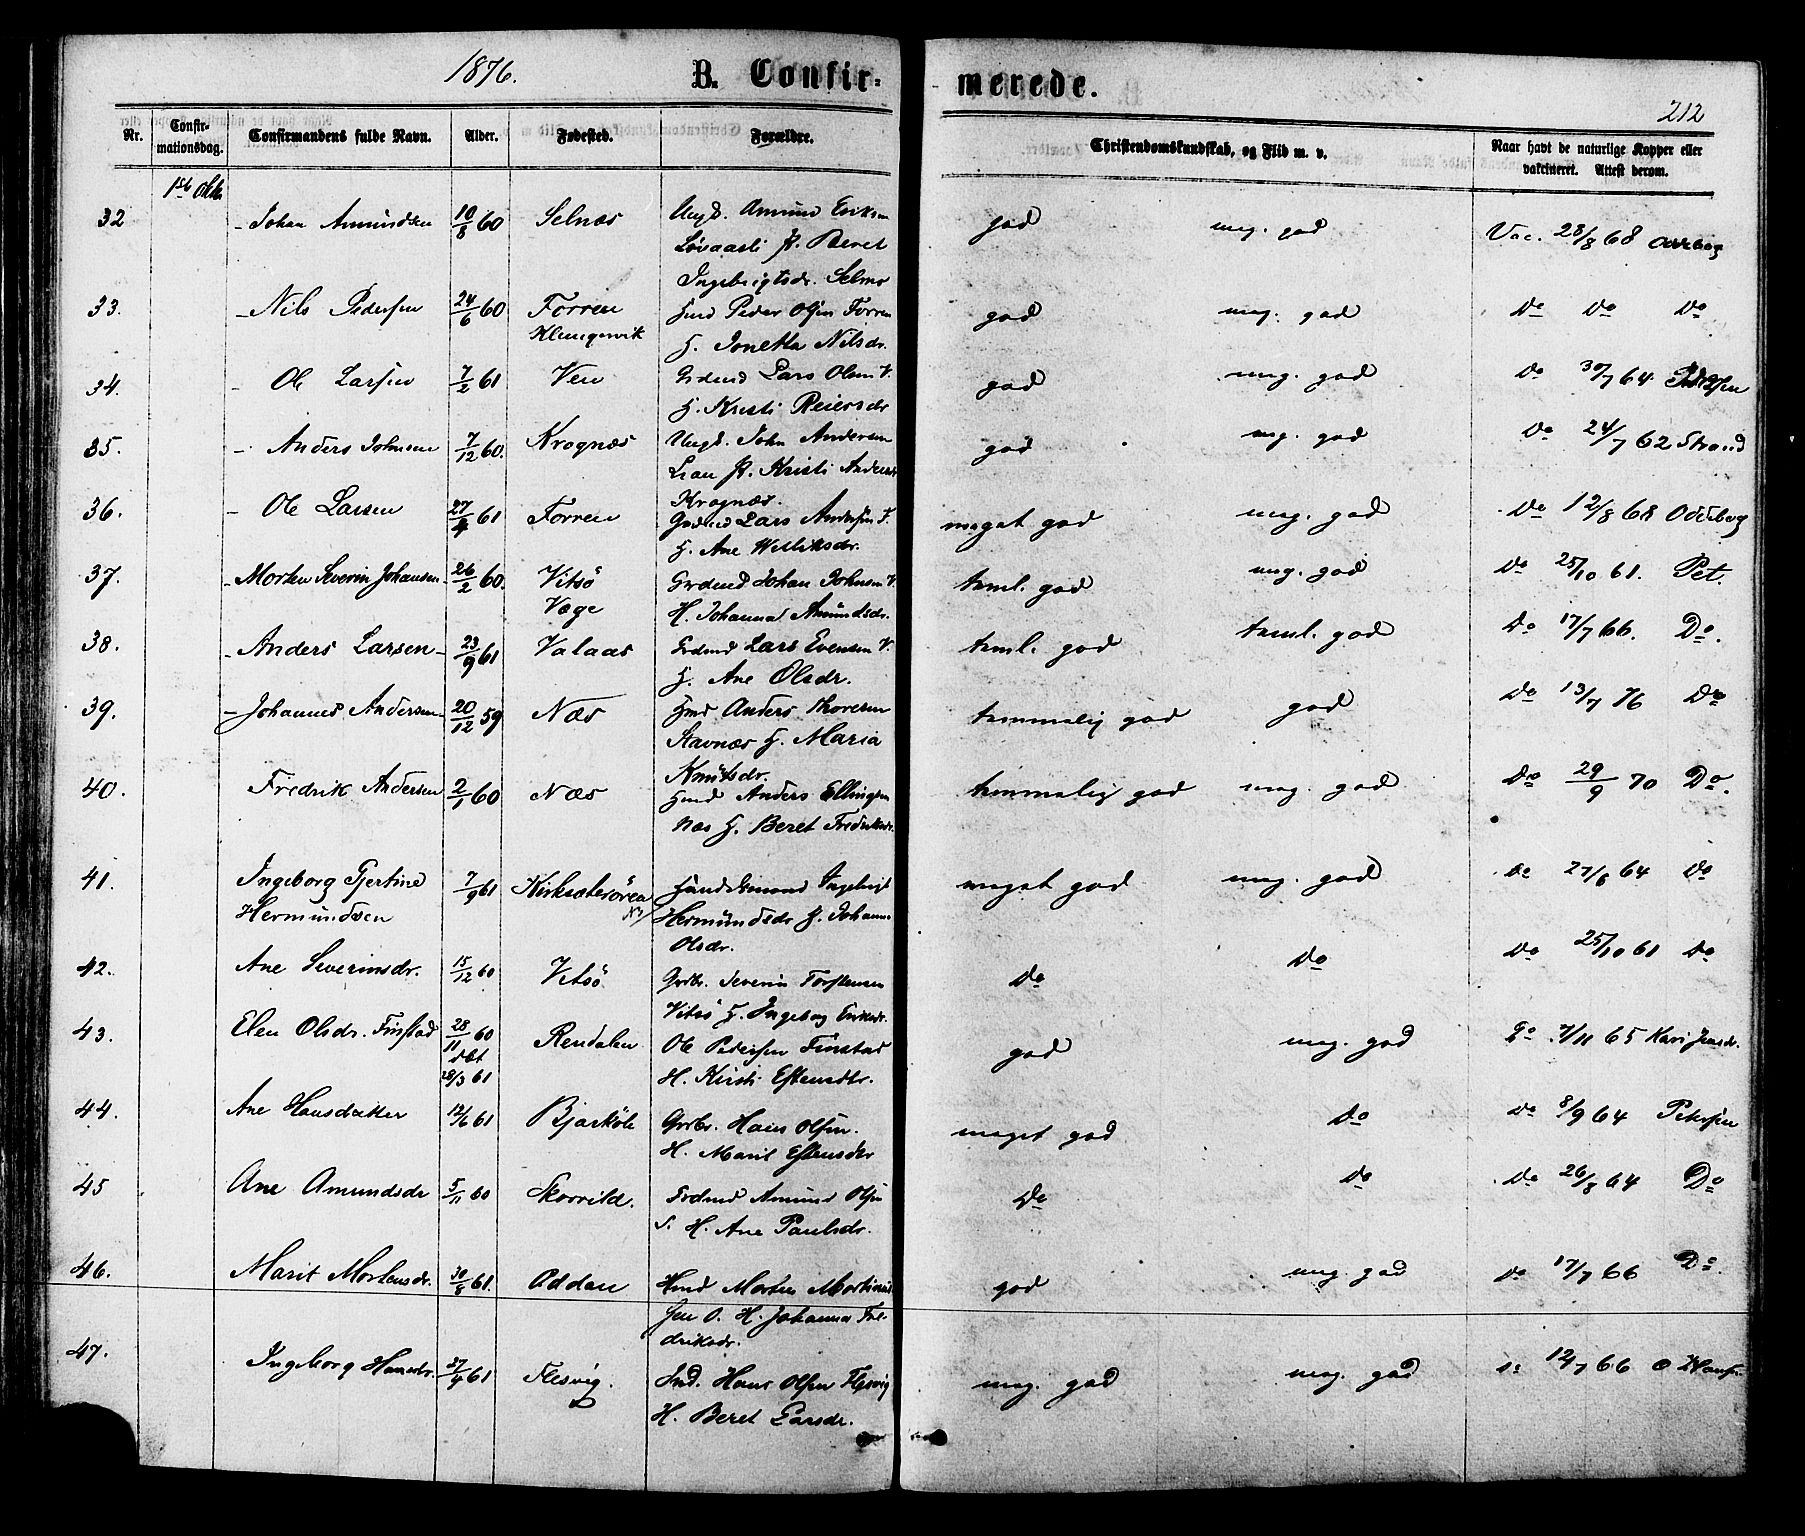 1876.
B. Confir-
merede.
212
Nr.
Confir-
mationsdag.
Confirmandens fulde Navn.
Alder.
Fødested.
Forældre.
Christendomskundskab, og Flid m. v.
Naar havt de naturlige Kopper eller
vakcineret. Attest derom.
32 Johan Amundsen 10/8 60 Selnæs Ungk. Amund Eriksen god meg. god Vac. 28/8 68
Løvaasli P. Beret
Ingebrigtsdr. Selnæs
33. Nils Pedersen 24/6 60 Forren Hmd Peder Olsen Forren god meg. god Do Do Do
Klungervik H. Jonetta Nilsdr.
34. Ole Larsen 7/2 61 Ven Grdmd Lars Olsen V. god meg. god Do 30/7 64
H. Kristi Reiersdr
35. Anders Johnsen 7/12 60. Krognæs Ungk. John Andersen god meg. god Do 24/7 62 Strand
Lian P. Kristi Andersdr
Krognæs.
36. Ole Larsen 27/4 61 Forren Grdmd Lars Andersen F. meget god meg. god Do 12/8 68
H. Ane
37. Morten Severin Johansen 26/2 60. Vitsø Grdmd Johan Johnsen V. teml. god meg. god Do 25/10 61. Pet.
Væge H. Johanna Amundsdr.
38. Anders Larsen 23/9 61 Valaas Grdmd Lars Evensen V. teml. god teml. god Do 17/7 66. Do.
H. Ane Olsdr.
39. Johannes Andersen 20/12 59 Næs Hmd Anders Thoresen temmelig god god Do 13/7 76 Do
Stavnæs H. Maria
Knutsdr.
40. Fredrik Andersen 2/1 60 Næs Hmd Anders Ellingsen temmelig god meg. god Do 29/9 70 Do.
Næs H. Beret Fredriksdr.
41. Ingeborg Gjertine 7/9 61 Kirksæterøren Handelsmand Ingebrigt meget god meg. god Do 27/8 64 Do
Hermundsen Hermundsdr H. Johanna
Olsdr.
42. Ane Severinsdr. 15/12 60 Vitsø Grdbr. Severin Torstensen Do Do Do 25/10 61 Do
Vitsø H. Ingeborg Eriksdr.
43. Elen Olsdr. Finstad 28/11 60 Rendalen Ole Pedersen Finstad god meg. god Do 7/11 65 Kari Jensdr.
døbt
28/3 61 H. Kirsti Estensdtr.
44. Ane Hansdatter 12/6 61 Bjørkøle Grdbr. Hans Olsen. meget god Do Do 8/9 64 Petersen
H. Marit Estensdtr
45 Ane Amundsdr 5/11 60 Skorrild. Grdmd Amund Olsen Do Do Do 26/8 64 Do
S. H. Ane Paulsdr.
46. Marit Mortensdr. 30/8 61. Oddan Hmd Morten Mortinus god meg. god Do 17/7 66 Do.
sen O. H. Johanna Fre-
driksdr.
47. Ingeborg Hansdr. 27/4 61 Flesvig. Ind. Hans Olsen Flesvig meg. god meg. god Do 12/7 66 O Hansen
H. Beret Larsdr.